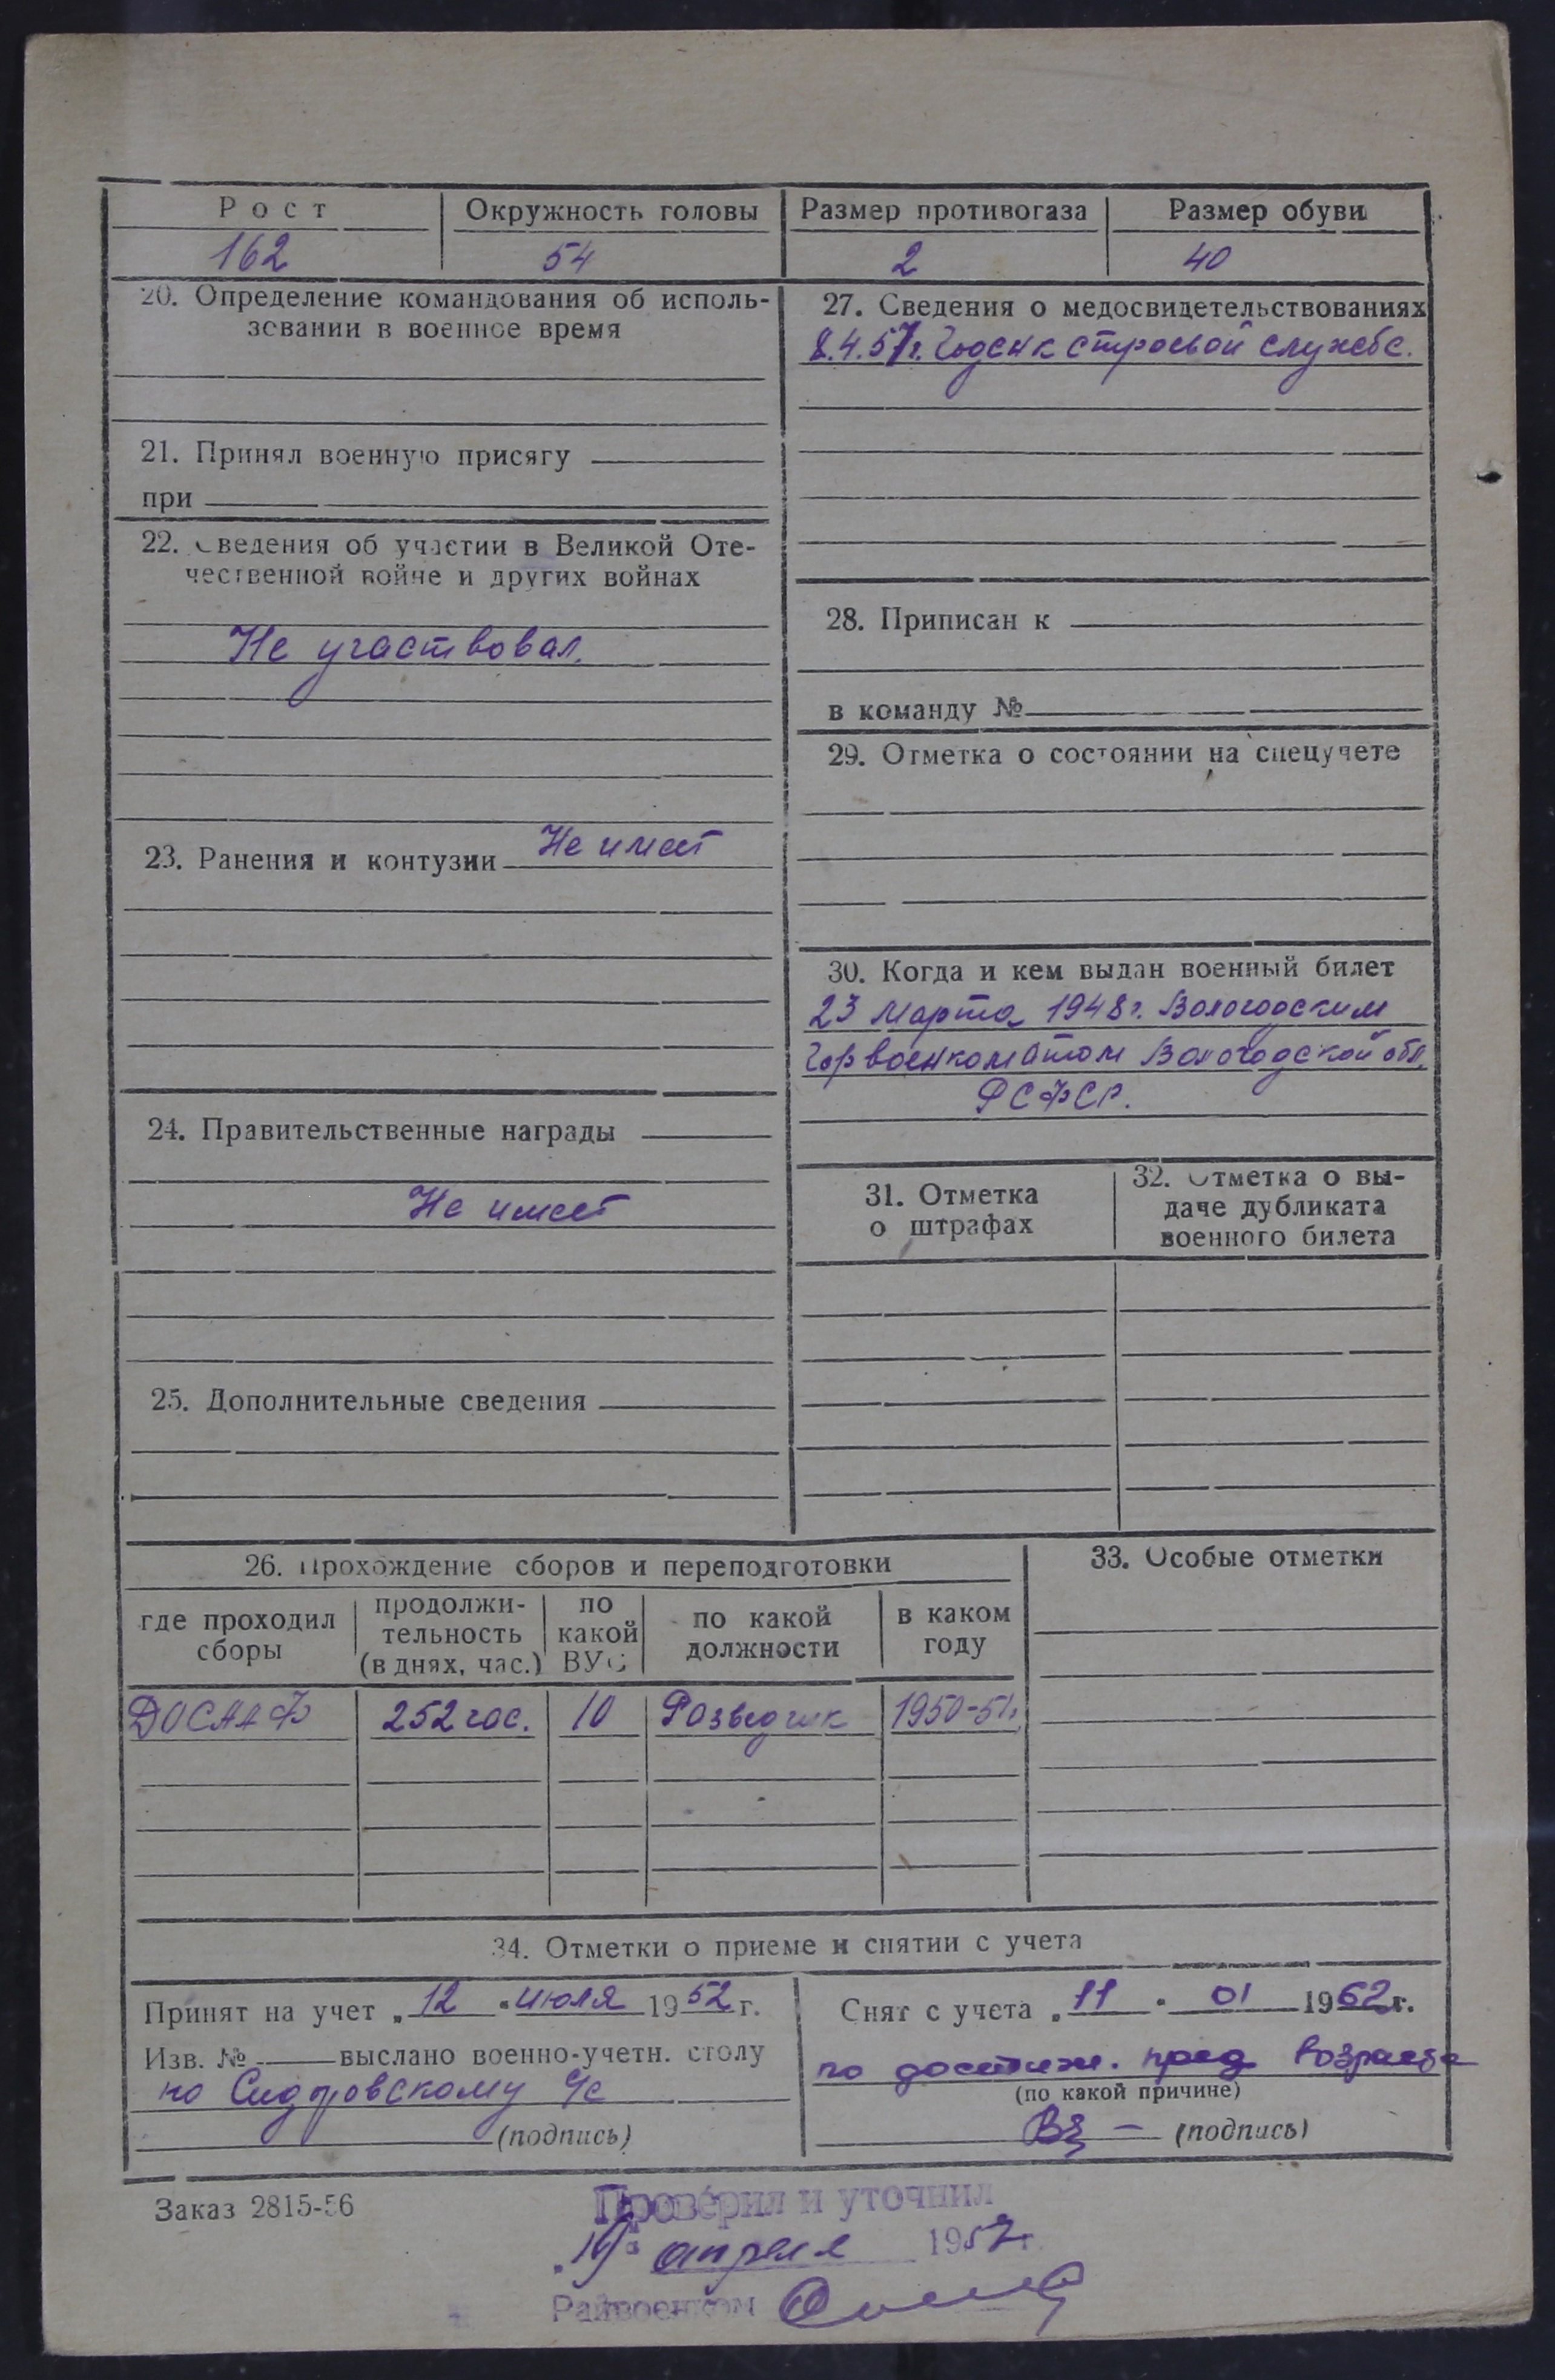 Рост
162
Окружность головы
54
Размер противогаза
2
Размер обуви
40
20. Определение командования об исполь-
зовании в военное время
21. Принял военную присягу
при
22. Сведения об участии в Великой Оте-
чественной войне и других войнах
Не участвовал.
23. Ранения и контузии Не имеет
24. Правительственные награды
Не имеет
25. Дополнительные сведения
27. Сведения о медосвидетельствованиях
8.4.57г. Годен к строевой службе.
28. Приписан к
в команду №
29. Отметка о состоянии на спецучете
30. Когда и кем выдан военный билет
23 марта 1948г. Вологодским
Горвоенкоматом Вологодской обл.
РСФСР.
31. Отметка
о штрафах
32. Отметка о вы-
даче дубликата
военного билета
26. Прохождение сборов и переподготовки
где проходил
сборы
продолжи-
тельность
(в днях, час.)
по
какой
ВУС
по какой
должности
в каком
году
ДОСААФ 252 час. 10 Разведчик 1950-51г.
33. Особые отметки
34. Отметки о приеме и снятии с учета
Принят на учет „12" июля 1952 г.
Изв. № выслано военно-учетн. столу
по Сидоровскому с/с
(подпись)
Снят с учета „11" 01 1962 г.
по достиж. пред возраста
(по какой причине)
(подпись)
Заказ 2815-56
Проверил и уточнил
апреля 1957г.
Райвоенком